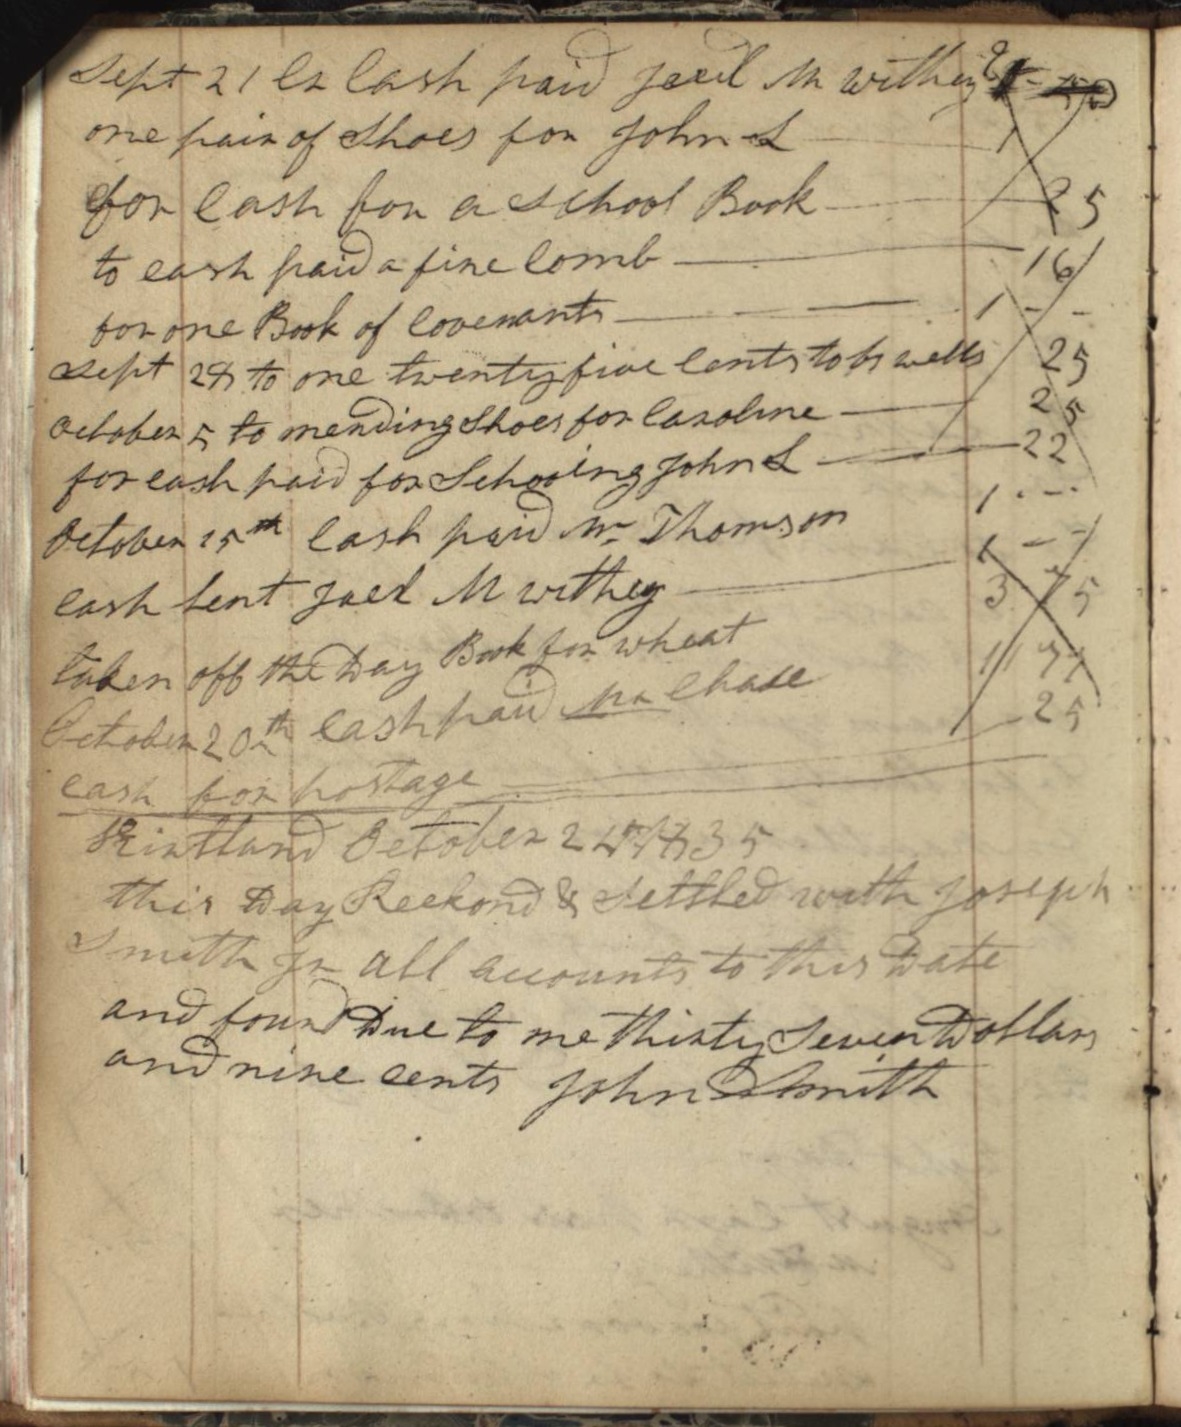 Sept 21 Cr Cash paid Joed M withey
one pair of Shoes for John S 1
for Cash for a School Book 25
to cash paid a fine Comb 16
for one Book of Covenants 1 - -
Sept 28 to one twenty five Cents to br wells 25
October 5 to mending Shoes for Caroline 25
for cash paid for Schooling John S 22
October 15th Cash paid Mr Thomson 1 - -
cash Lent Joed M withey 1 - -
taken off the Day Book for wheat 3 75
October 20th Cash paid Mr Chase 11 77
cash for postage 25
Kirtland October 24th 1835
this Day Reckond & Settled with Joseph
Smith Jr all accounts to this Date
and found Due to me thirty Seven Dollars
and nine cents John Smith